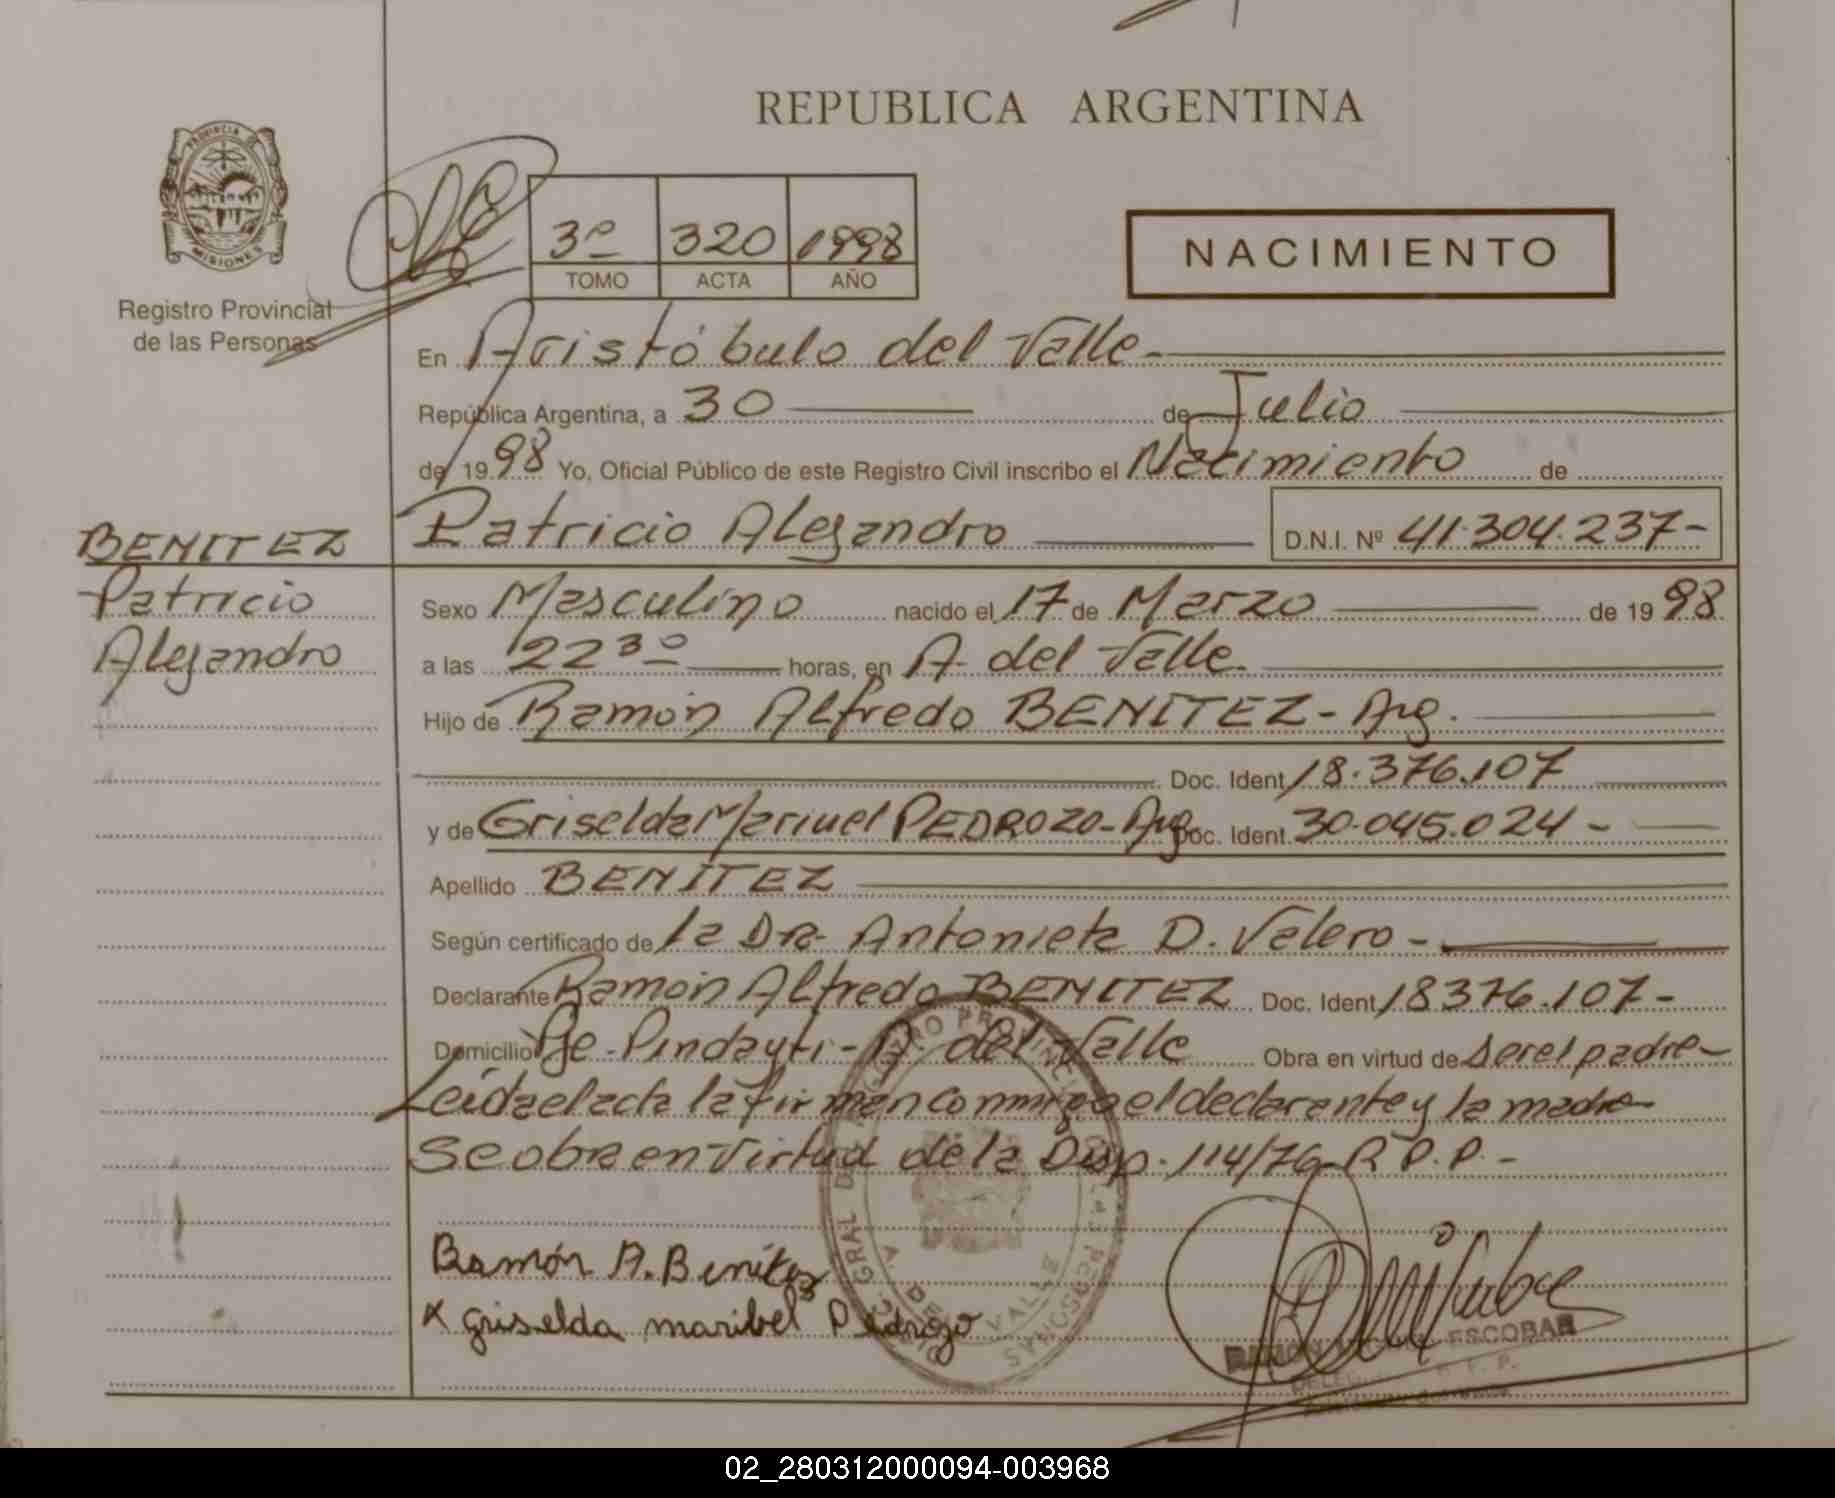 REPUBLICA ARGENTINA
PROVINCIA DE
MISIONES
Registro Provincial
de las Personas
3º 320 1998
TOMO ACTA AÑO
NACIMIENTO
En Aristóbulo del Valle-
República Argentina, a 30 de Julio
de 1998 Yo, Oficial Público de este Registro Civil inscribo el Nacimiento de
Patricio Alejandro D.N.I. Nº 41.304.237-
BENITEZ
Patricio
Alejandro
Sexo Masculino nacido el 17 de Marzo de 1998
a las 22 30 horas, en A. del Valle.
Hijo de Ramón Alfredo BENITEZ- Arg.
Doc. Ident 18.376.107
y de Griselda Mariuel PEDROZO- Arg. Doc. Ident. 30.045.024 -
Apellido BENITEZ
Según certificado de la DRA- Antonieta D. Valero -
Declarante Ramón Alfredo BENITEZ Doc. Ident 18376.107-
Domicilio Pje - Pindayti - A. del Valle Obra en virtud de ser el padre-
Leída el acta la firman conmigo el declarante y la madre
se obra en virtud de la Disp. 114/76 R.P.P.-
Ramón A. Benítez
x griselda maribel Pedrozo
DIREC. GRAL DEL REGISTRO PROVINCIAL DE LAS PERSONAS
A. DEL VALLE
RAMON ESCOBAR
02_280312000094-003968